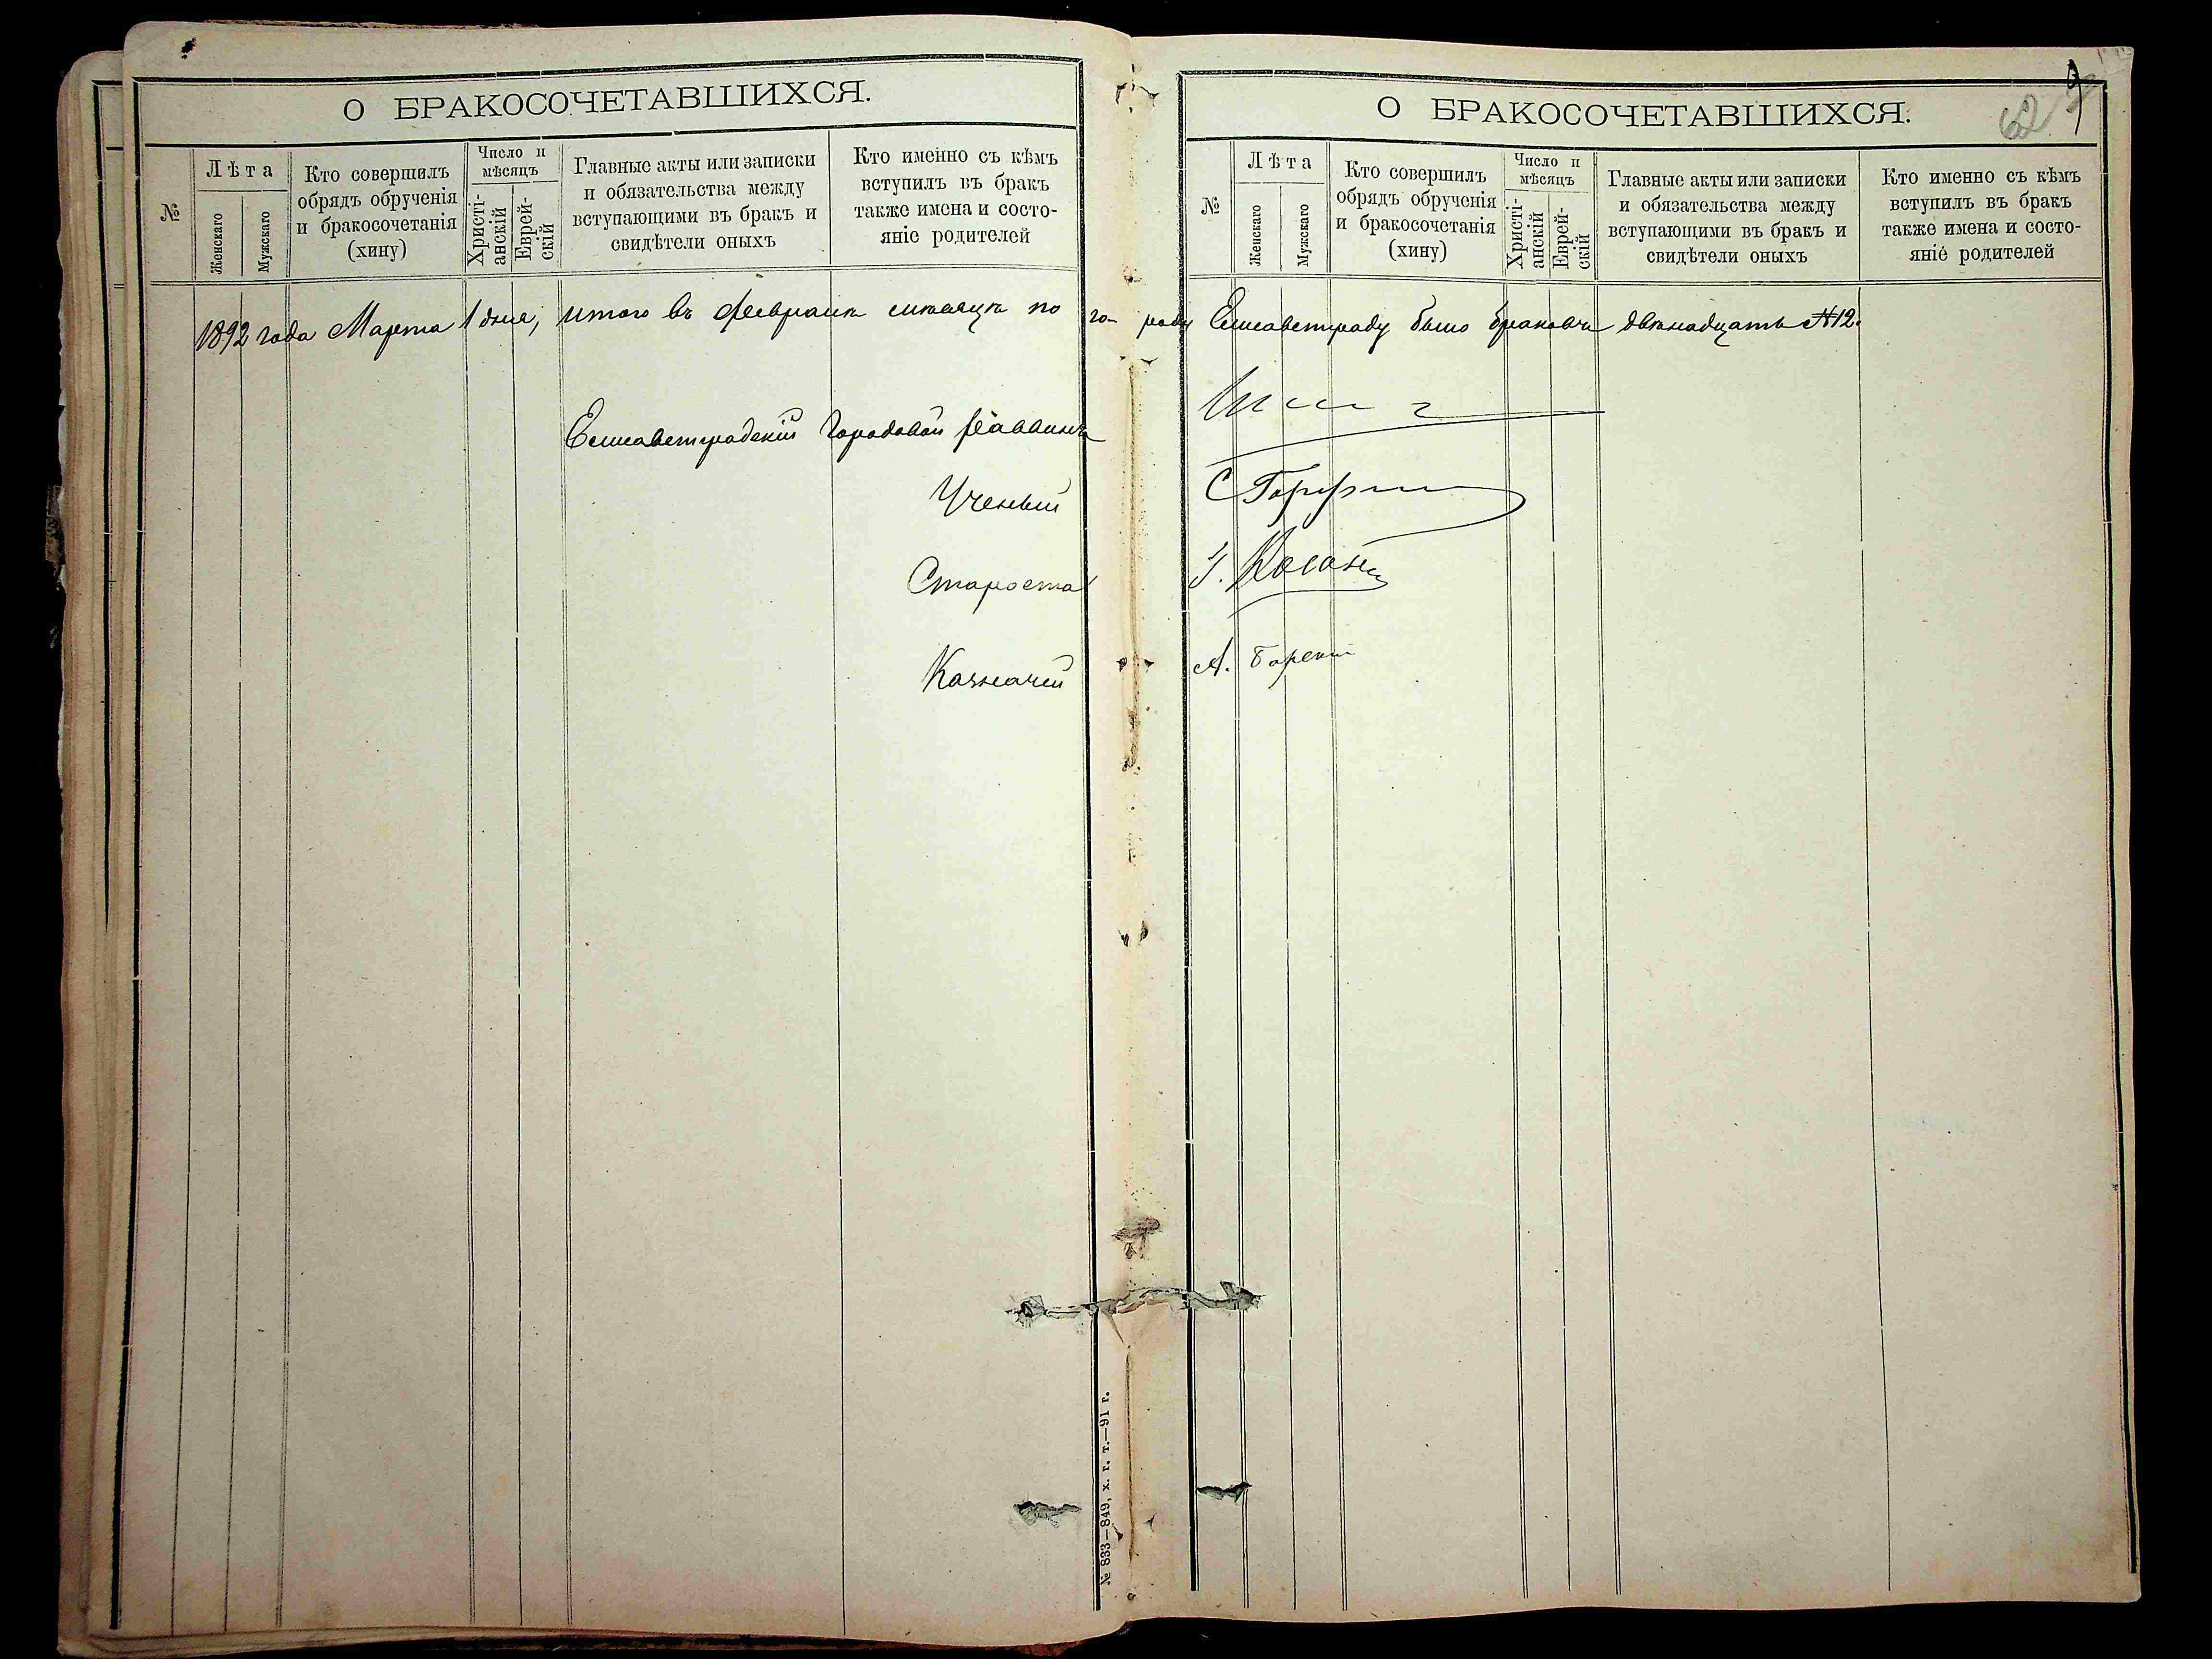 О БРАКОСОЧЕТАВШИХСЯ.
№
Лѣта
Женскаго
Мужскаго
Кто совершилъ
обрядъ обрученія
и бракосочетанія
(хину)
Число и
мѣсяцъ
Христі-
анскій
Еврей-
скій
Главные акты или записки
и обязательства между
вступающими въ бракъ и
свидѣтели оныхъ
Кто именно съ кѣмъ
вступилъ въ бракъ
также имена и состо-
яніе родителей
1892 года Марта 1 дня, итого въ февралѣ мѣсяцѣ по го-
Елисаветградскій Городовой Раввинъ
Ученый
Староста
Казначей
№ 833–849, х. г. т.–91 г.
О БРАКОСОЧЕТАВШИХСЯ.
62
№
Лѣта
Женскаго
Мужскаго
Кто совершилъ
обрядъ обрученія
и бракосочетанія
(хину)
Число и
мѣсяцъ
Христі-
анскій
Еврей-
скій
Главные акты или записки
и обязательства между
вступающими въ бракъ и
свидѣтели оныхъ
Кто именно съ кѣмъ
вступилъ въ бракъ
также имена и состо-
яніе родителей
роду Елисаветграду было браковъ двѣнадцать №12.
А.